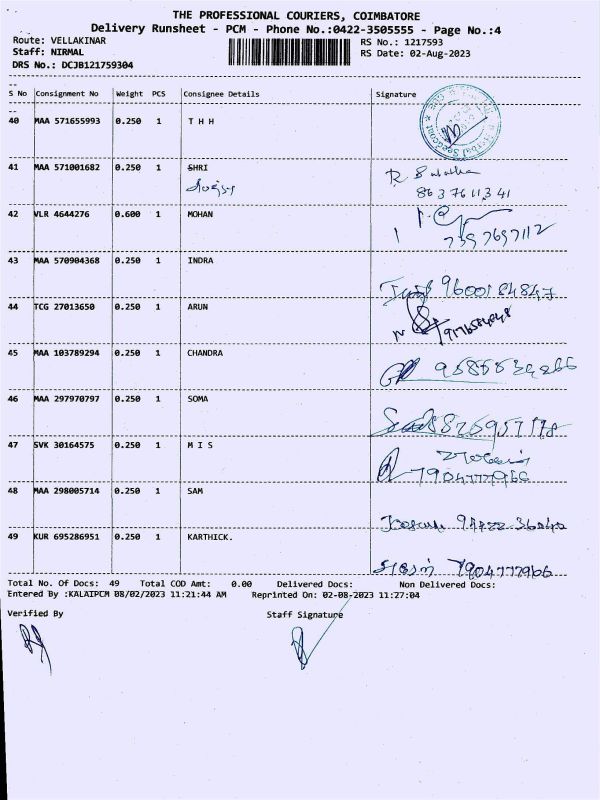 THE PROFESSIONAL COURIERS, COIMBATORE
Delivery Runsheet - PCM - Phone No.:0422-3505555 - Page No.:4
Route: VELLAKINAR RS No.: 1217593
Staff: NIRMAL RS Date: 02-Aug-2023
DRS No.: DCJB121759304
S No Consignment No Weight PCS Consignee Details Signature
40 MAA 571655993 0.250 1 T H H
41 MAA 571001682 0.250 1 SHRI
8637611341
42 VLR 4644276 0.600 1 MOHAN
7397697112
43 MAA 570904368 0.250 1 INDRA
9600184847
44 TCG 27013650 0.250 1 ARUN
45 MAA 103789294 0.250 1 CHANDRA
46 MAA 297970797 0.250 1 SOMA
47 SVK 30164575 0.250 1 M I S
7904777966
48 MAA 298005714 0.250 1 SAM
49 KUR 695286951 0.250 1 KARTHICK.
7904777966
Total No. Of Docs: 49 Total COD Amt: 0.00 Delivered Docs: Non Delivered Docs:
Entered By :KALAIPCM 08/02/2023 11:21:44 AM Reprinted On: 02-08-2023 11:27:04
Verified By Staff Signature